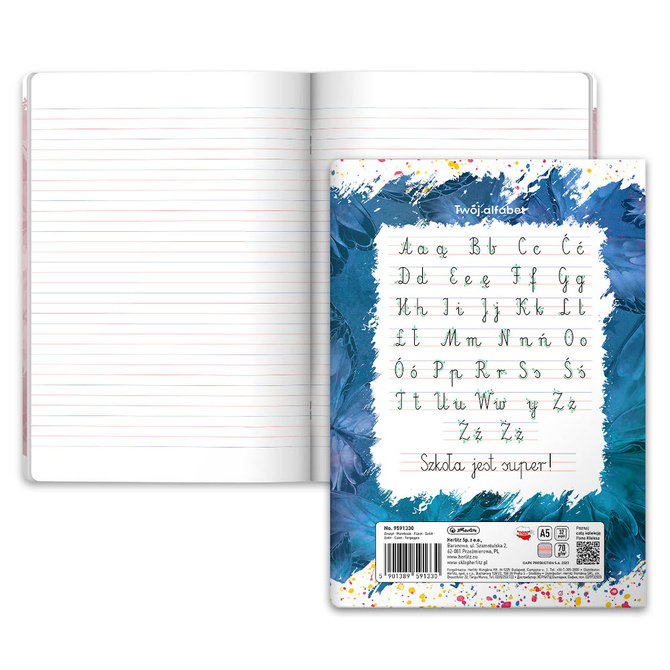 Twój alfabet
A a ą B b C c Ć ć
D d E e ę F f G g
H h I i J j K k L l
Ł ł M m N n ń O o
Ó ó P p R r S s Ś ś
T t U u W w y Z z
Ź ź Ż ż
Szkoła jest super!
No. 9591330
herlitz
Herlitz Sp. z o.o.,
Baranowo, ul. Szamotulska 2,
62-081 Przeźmierowo, PL
www.herlitz.eu
www.sklepherlitz.pl
A5
32
70
g/m²
Poznaj
całą kolekcję
5 901389 591330